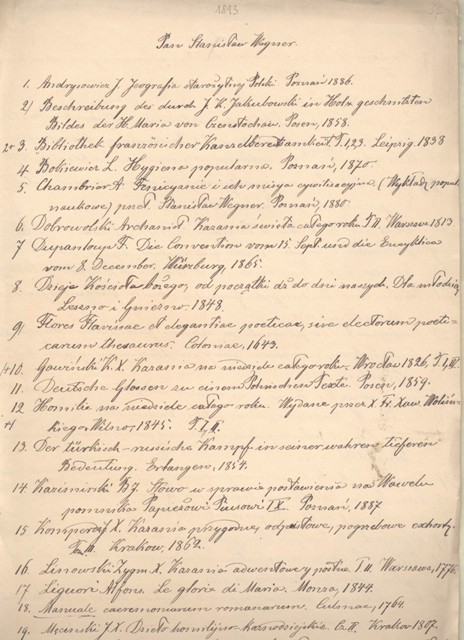 1893
Pan Stanisław Wegner.
1. Andrysowicz J. Jeografia starożytnej Polski Poznań 1886.
2) Beschreibung des durch J. K. Jakubowski in Holz geschnitzten
Bildes der H. Maria von Czenstochau. Posen, 1858.
3. Bibliothek französicher Kanzelberedtsamkeit. T. 1,2,3. Leipzig. 1838
4 Botkiewicz L. Hygiena popularna. Poznań, 1870.
5. Chambrier A. Fenicyanie i ich misya cywilizacyjna. (Wykłady popul.
naukowe) przeł. Stanisław Wegner. Poznań, 1880.
6 Dobrowolski Archaniół Kazania święta całego roku T. II. Warszawa 1813
7 Dupanloup F. Die Convention vom 15 Sept. und die Encyklica
vom 8. December. Würzburg, 1865.
8. Dzieje Kościoła Bożego, od początku aż do dni naszych. Dla młodzieży
Leszno i Gniezno. 1848.
9) Flores Flavissae et elegantiae poeticae, sive electorum poeti-
carum thesaurus. Coloniae, 1643.
10. Gawiński K. X. Kazania na niedziele całego roku. Wrocław 1826, T. I, III.
11. Deutsche Glossen zu einem Polnischen Texte. Posen, 1854.
12 Homilie na niedziele całego roku. Wydane przez X. Fr. Xaw.
kiego Wilno, 1845. T. I, II.
13. Der türkisch-russische Kampf in seiner wahren tieferen
Bedeutung. Erlangen, 1854.
14 Kaźmirski B. J. Słowo w sprawie postawienia na Wawelu
pomnika Papieżowi Piusowi IX. Poznań, 1887
15 X. Kazania przygodne, odpustowe, pogrzebowe exhorty.
Tom III. Kraków, 1862.
16. Linowski Zygm X. Kazania adwentowe y postne. T. II. Warszawa, 1776.
17 Liguori Alfons. Le glorie di Maria. Monza, 1844.
18. Manuale caeremoniarum romanarum. Culmae, 1764.
19. Męciński J. X. Dzieło homilijno-kaznodziejskie. Kraków 1807.